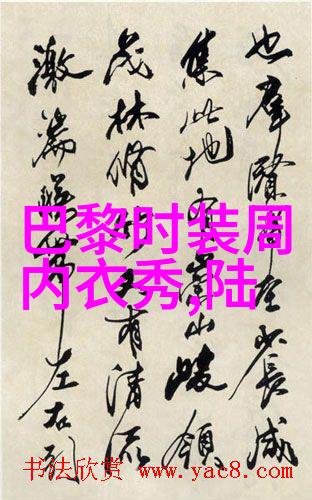 也羣賢畢至少長咸
集此地有崇山峻領
茂林脩竹又有清流
激湍暎帶左右引
巴黎时装周
内衣秀,陆
书法欣赏 www.yac8.com